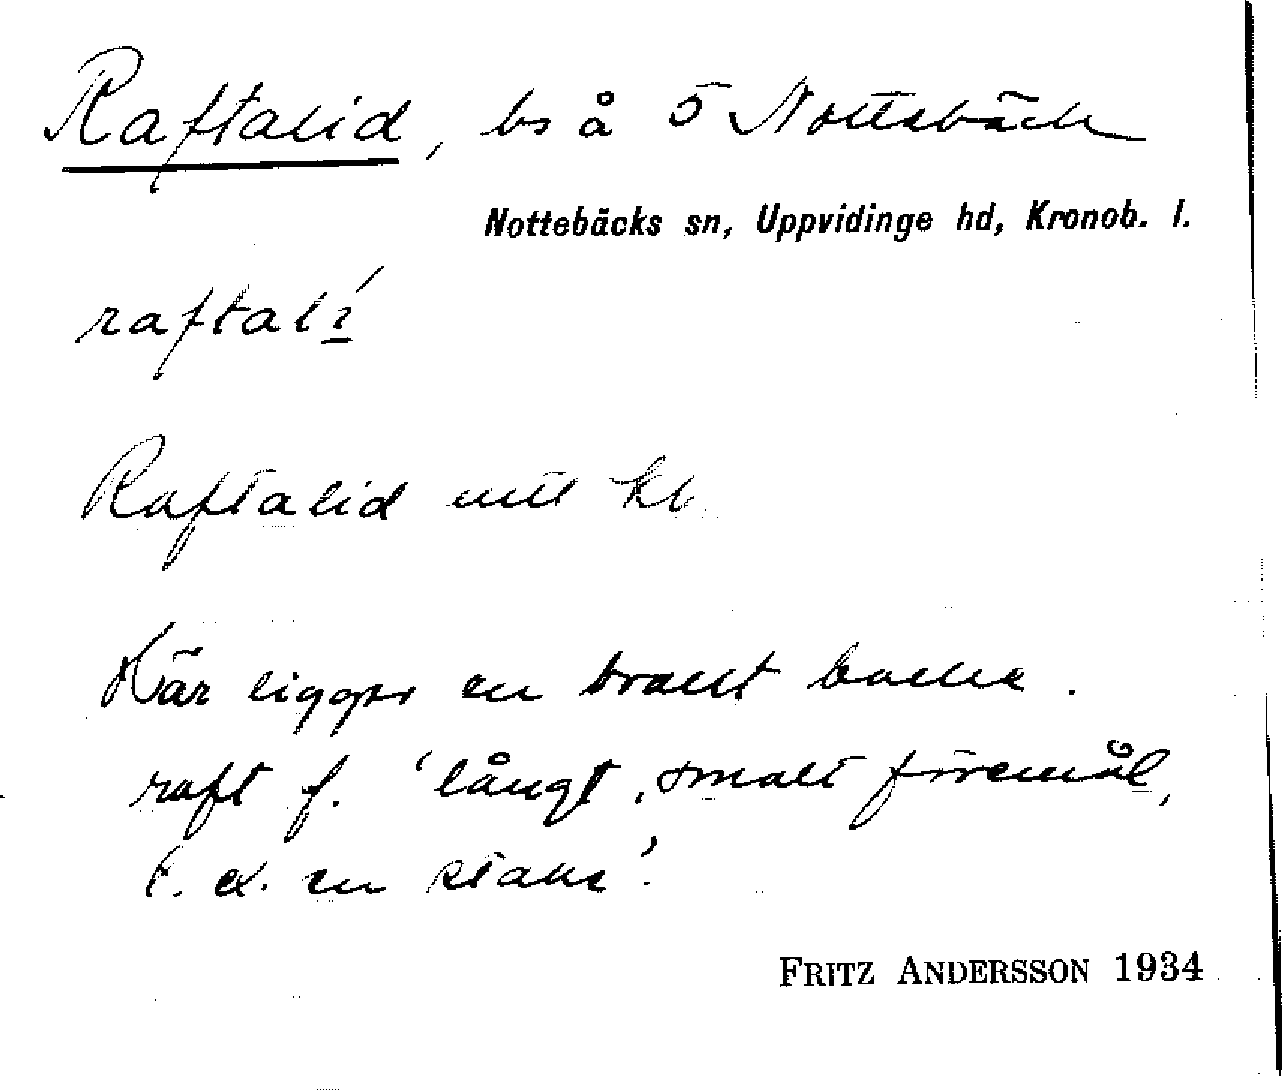 Raftalid, bs å 5 Nottebäck
Nottebäcks sn, Uppvidinge hd, Kronob. l.
raftalí
Raftalid
Där ligger en brant backe.
raft f. 'långt, smalt föremål,
t. ex. en stake'.
FRITZ ANDERSSON 1934